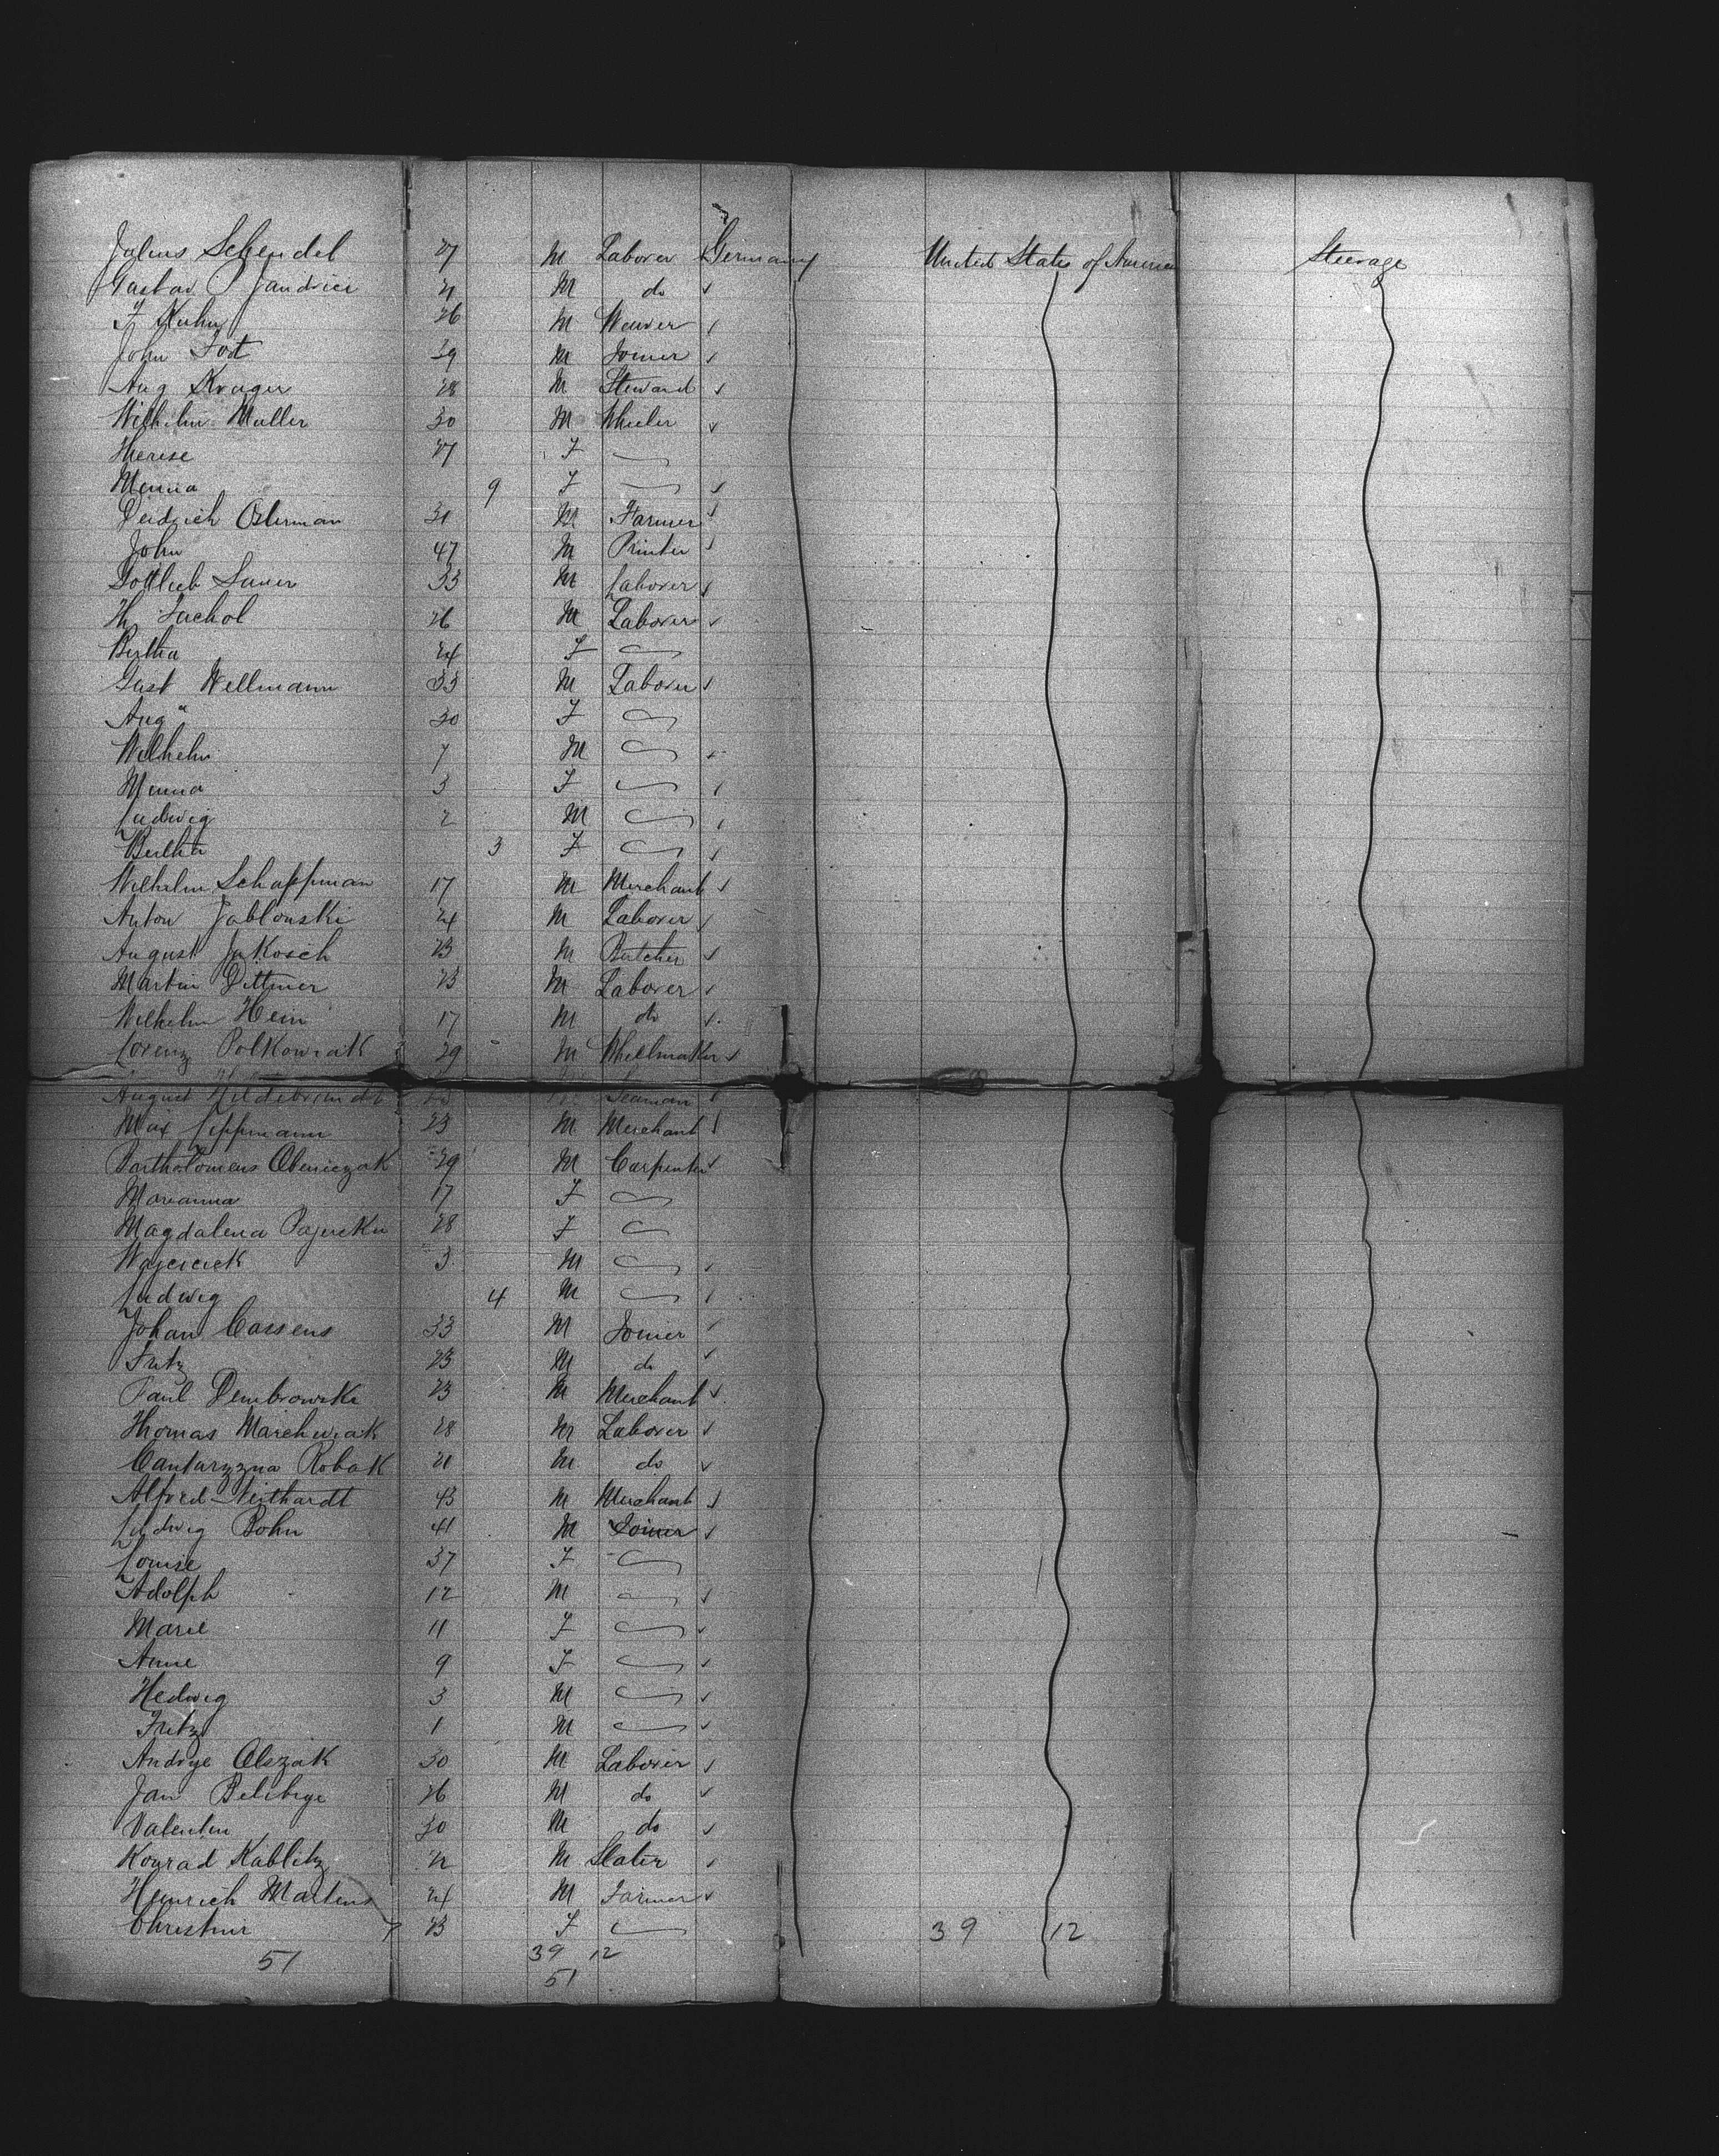 Julius Schendel 27 M Laborer Germany United States of America Steerage
Gustav Jandrier 21 M do
F Kuhn 26 M Weaver
John Fodt 39 M Joiner
Aug Kruger 28 M Steward
Wilhelm Muller 30 M Wheeler
Therese 27 F
Menna 9 F
Deidrich Osterman 31 M Farmer
John 47 M Printer
Gottlieb Sauer 33 M Laborer
Th Suchol 26 M Laborer
Bertha 24 F
Gust Wellmann 33 M Laborer
Aug" 30 F
Wilhelm 7 M
Menna 3 F
Ludwig 2 M
Bertha 3 F
Wilhelm Schappman 17 M Merchant
Anton Jablonski 24 M Laborer
August Jakosch 23 M Butcher
Martin Dittmer 23 M Laborer
Wilhelm Hein 17 M do
Lorenz Polkowiak 29 M Whellmaker
August Hildebrandt 25 M Seaman
Max Lippmann 23 M Merchant
Bartholomeus Obeniczak 29 M Carpenter
Marianna 17 F
Magdalena 28 F
Wojciciek 3 M
Ludwig 4 M
Johan Cassens 33 M Joiner
Fritz 23 M do
Paul Dembrowski 23 M Merchant
Thomas Marchwiak 28 M Laborer
Cantaryzna Robak 21 M do
Alfred Neithardt 43 M Merchant
Ludwig Bohn 41 M Joiner
Louise 37 F
Adolph 12 M
Marie 11 F
Anne 9 F
Hedwig 3 M
Fritz 1 M
Andrye Olszak 30 M Laborer
Jan 26 M do
Valentin 30 M do
Konrad Kablitz 22 M Slater
Heinrich Martens 24 M Farmer
Christine 23 F 39 12
51 39 12
51